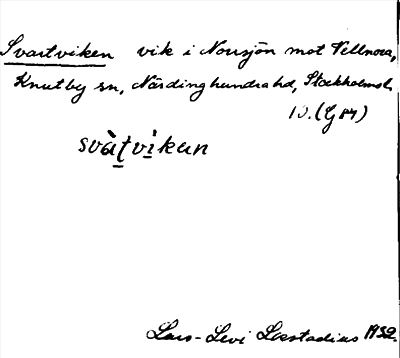 Svartviken vik i Norrsjön mot Vellnora,
Knutby sn, Närdinghundra hd, Stockholms l.
10. (G 84)
svàt̲vi̲kan
Lars-Levi Læstadius 1932.